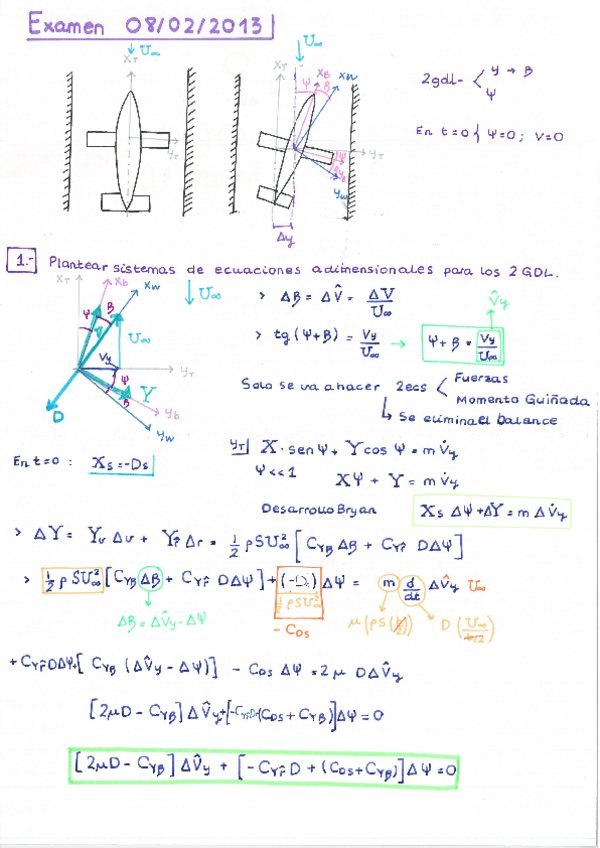 Examen 08/02/2013
U∞
X_T
Y_T
U∞
X_T
Ψ
X_B
β
X_W
Y_T
Y_B
Y_W
Δy
2gdl- < y → β
Ψ
En t=0 { Ψ=0; v=0
1.- Plantear sistemas de ecuaciones adimensionales para los 2 GDL.
X_T
X_b
X_W
U∞
Ψ
β
U∞
V_y
Y_T
Ψ
Y
β
D
Y_b
Y_W
> Δβ = ΔV̂ = ΔV/U∞
V̂y
> tg(Ψ+β) = Vy/U∞ → Ψ+β = Vy/U∞
Solo se va a hacer 2ecs < Fuerzas
Momento Guiñada
↳ Se elimina el balance
En t=0 : Xs=-Ds
Y_T| X·senΨ + Y cosΨ = m V̇y
Ψ<<1 XΨ + Y = m V̇y
Desarrollo Bryan Xs ΔΨ + ΔY = m Δ V̇y
> ΔY = Yv Δv + Yr̂ Δr = ½ ρSU∞² [ C_Yβ Δβ + C_Yr̂ DΔΨ ]
> ½ ρSU∞² [ C_Yβ Δβ + C_Yr̂ DΔΨ ] + (-Ds)/(½ρSU∞²) ΔΨ = m d/dt ΔV̂y U∞
Δβ = ΔV̂y - ΔΨ
- C_DS
μ(ρS(b/2))
D(U∞/(b/2))
+ C_Yr̂ DΔΨ + [ C_Yβ (ΔV̂y - ΔΨ) ] - C_DS ΔΨ = 2μ DΔV̂y
[2μD - C_Yβ] ΔV̂y + [-C_Yr̂ D + (C_DS + C_Yβ)] ΔΨ = 0
[2μD - C_Yβ] ΔV̂y + [-C_Yr̂ D + (C_DS + C_Yβ)] ΔΨ = 0